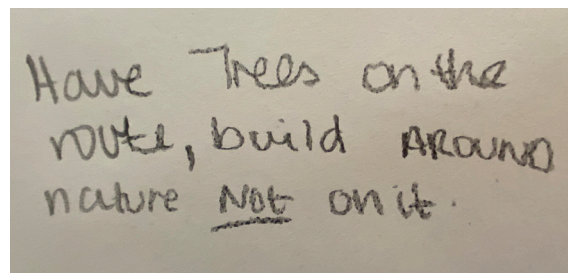 Have Trees on the
route, build AROUND
nature Not on it.